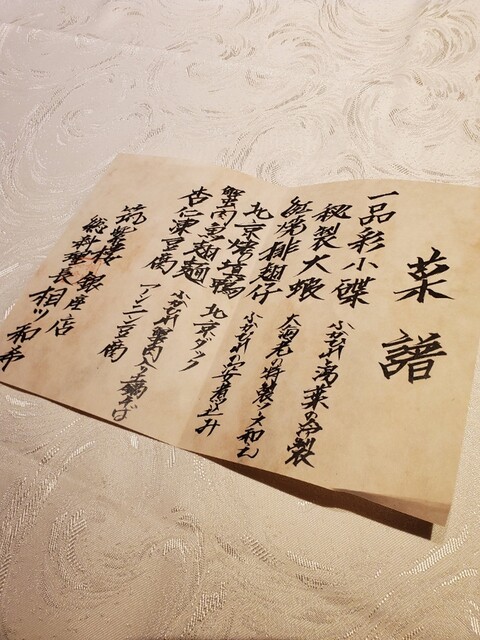 菜譜
一品彩小碟 ふかひれと湯葉の冷製
秘製大蝦 大海老の特製ソース和え
紅焼排翅仔 ふかひれの姿煮込み
北京烤填鴨 北京ダック
蟹肉魚翅麺 ふかひれと蟹肉入り上湯そば
杏仁凍豆腐 アンニン豆腐
筑紫樓 銀座店
総料理長 相川 和希